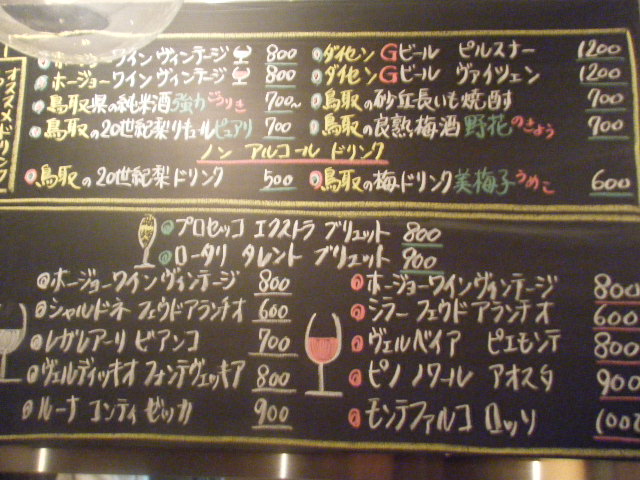 オススメドリンク
ホージョーワイン ヴィンテージ 800
ホージョーワイン ヴィンテージ 800
鳥取県の純米酒 強力 ごうりき 700~
鳥取の20世紀梨リキュール ピアリ 700
ダイセンGビール ピルスナー 1200
ダイセンGビール ヴァイツェン 1200
鳥取の砂丘長いも焼酎 700
鳥取の良熟梅酒 野花 のきょう 700
ノン アルコール ドリンク
鳥取の20世紀梨ドリンク 500
鳥取の梅ドリンク 美梅子 うめこ 600
プロセッコ エクストラ ブリュット 800
ロータリ タレント ブリュット 900
ホージョーワインヴィンテージ 800
シャルドネ フェウドアランチオ 600
レガレアーリ ビアンコ 700
ヴェルディッキオ フォンテヴェッキア 800
ルーナ コンティ ゼッカ 900
ホージョーワインヴィンテージ 800
シラー フェウド アランチオ 600
ヴェルベイア ピエモンテ 800
ピノ ノワール アオスタ 900
モンテファルコ ロッソ